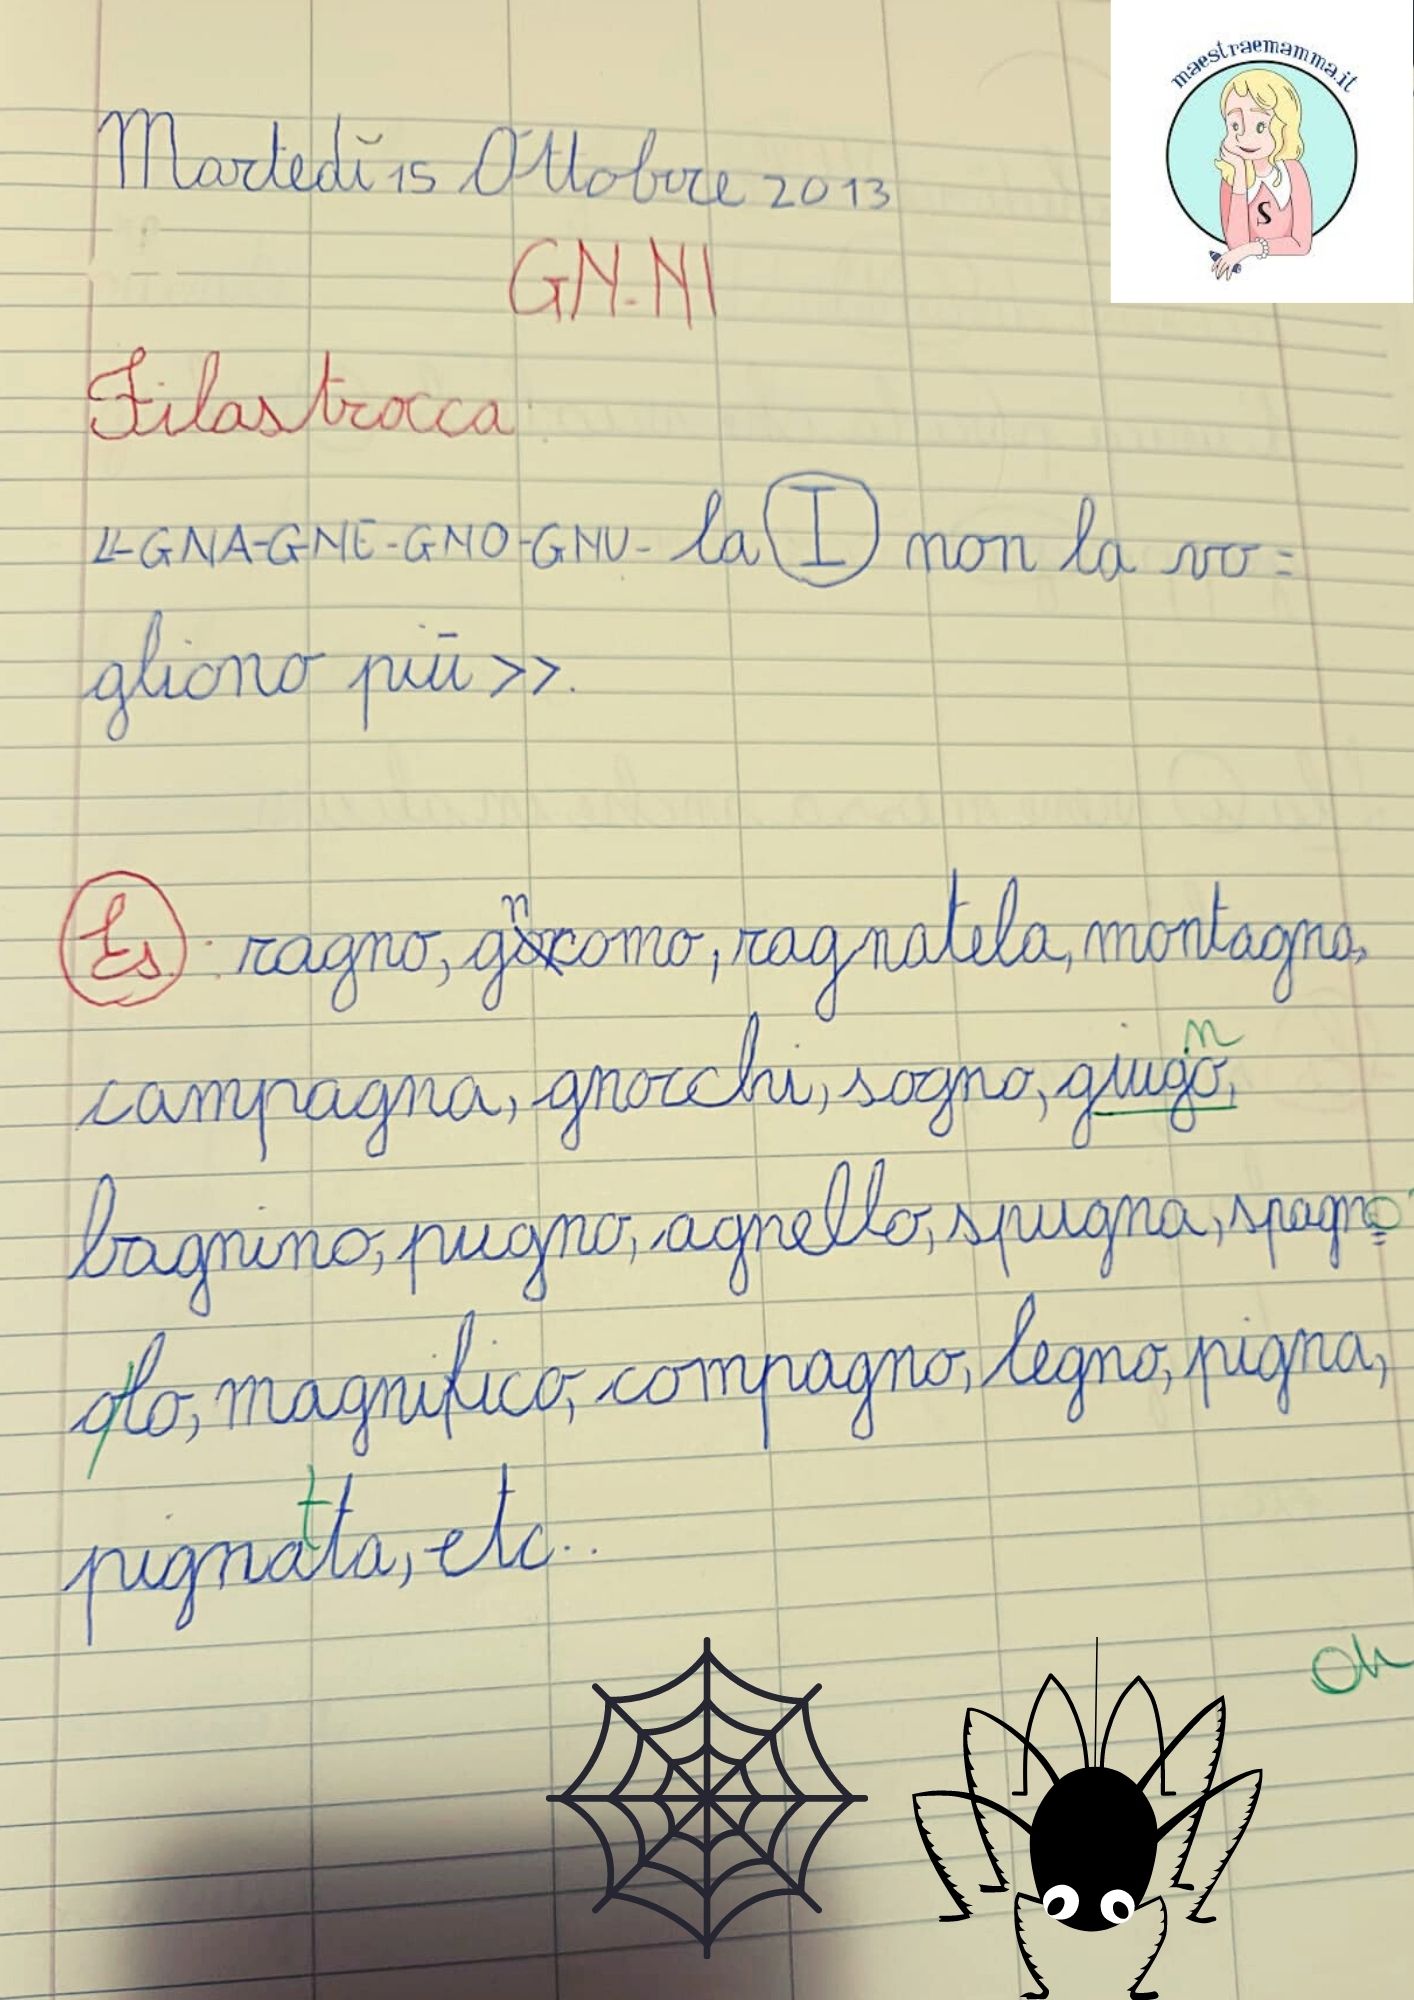 maestraemamma.it
S
Martedì 15 Ottobre 2013
GN-NI
Filastrocca:
<<GNA-GNE-GNO-GNU- la I non la vo=
gliono più>>.
Es.: ragno, gnomo, ragnatela, montagna,
campagna, gnocchi, sogno, giugno,
bagnino, pugno, agnello, spugna, spagno
lo, magnifico, compagno, legno, pigna,
pignatta, etc..